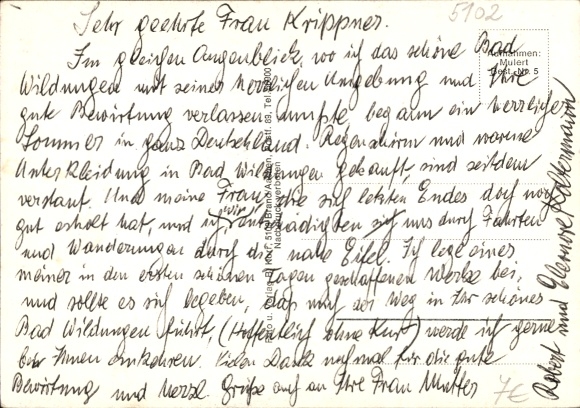 Sehr geehrte Frau Krippner.
Im gleichen Augenblick, wo ich das schöne Bad
Wildungen mit seiner herrlichen Umgebung und Ihre
gute Bewirtung verlassen mußte begann ein herrlicher
Sommer in ganz Deutschland. Regenschirm und warme
Unterkleidung in Bad Wildungen gekauft, sind seitdem
verstaut. Und meine Frau, die sich letzten Endes doch noch
gut erholt hat, und ich wir entschädigten uns durch Fahrten
und Wanderungen durch die nahe Eifel. Ich lege eines
meiner in den ersten schönen Tagen geschaffenen Werke bei,
und sollte es sich begeben, daß mich der Weg in Ihr schönes
Bad Wildungen führt, (Hoffentlich ohne Kur) werde ich gerne
bei Ihnen einkehren. Vielen Dank nochmal für die gute
Bewirtung und herzl Grüße auch an Ihre Frau Mutter
Robert und Eleonore
5102
Aufnahmen:
Mulert
Best.-Nr. 5
Nachdruck verboten
7€